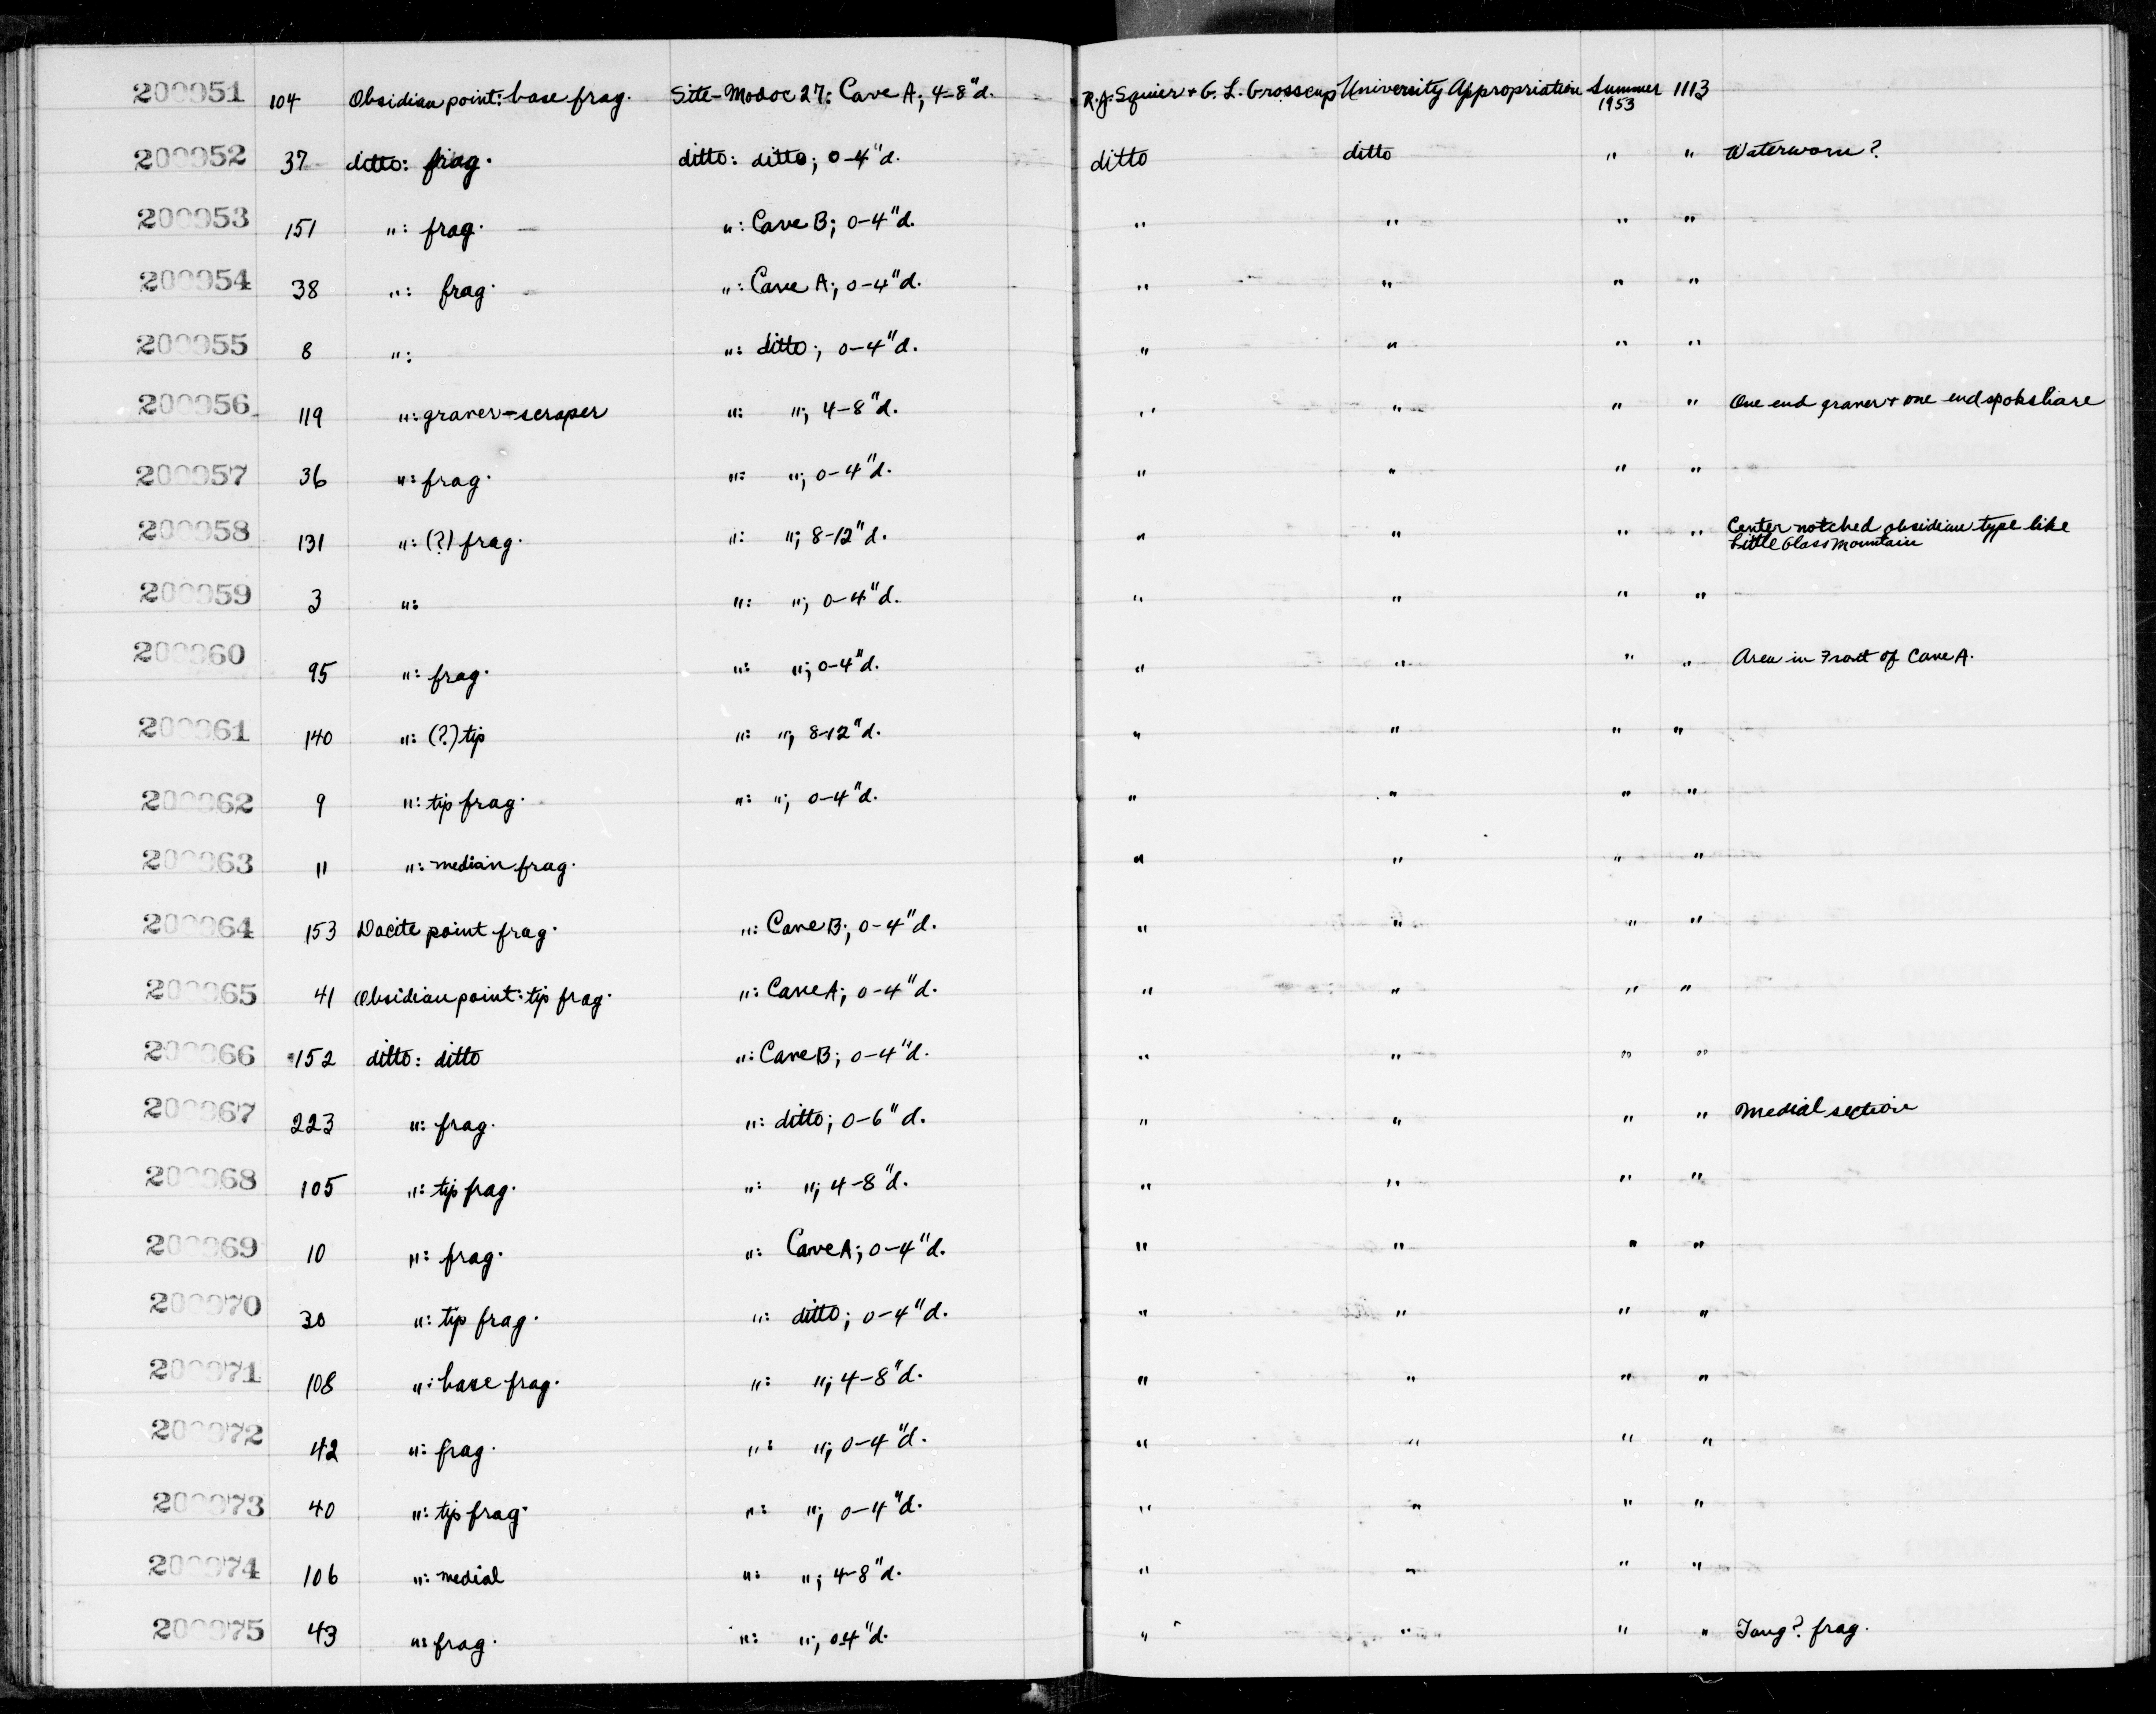 200951 104 Obsidian point: base frag. Site-Modoc 27: Cave A; 4-8"d. R.J. Squier + G. L. Grosscup University Appropriation Summer 1953 1113
200952 37 ditto: frag. ditto: ditto; 0-4"d. ditto ditto " " Waterworn?
200953 151 ": frag. ": Cave B; 0-4"d. " " " "
200954 38 ": frag. ": Cave A; 0-4"d. " " " "
200955 8 ": ": ditto; 0-4"d. " " " "
200956 119 ": graver-scraper ": "; 4-8"d. " " " " One end graver + one end spokshare
200957 36 ": frag. ": "; 0-4"d. " " " "
200958 131 ": (?) frag. ": "; 8-12"d. " " " " Center notched obsidian type like
Little Glass Mountain
200959 3 ": ": "; 0-4"d. " " " "
200960 95 ": frag. ": "; 0-4"d. " " " " Area in Front of Cave A.
200961 140 ": (?) tip ": "; 8-12"d. " " " "
200962 9 ": tip frag. ": "; 0-4"d. " " " "
200963 11 ": median frag. " " " "
200964 153 Dacite point frag. ": Cave B; 0-4"d. " " " "
200965 41 Obsidian point: tip frag. ": Cave A; 0-4"d. " " " "
200966 152 ditto: ditto ": Cave B; 0-4"d. " " " "
200967 223 ": frag. ": ditto; 0-6"d. " " " " Medial section
200968 105 ": tip frag. ": "; 4-8"d. " " " "
200969 10 ": frag. ": Cave A; 0-4"d. " " " "
200970 30 ": tip frag. ": ditto; 0-4"d. " " " "
200971 108 ": base frag. ": "; 4-8"d. " " " "
200972 42 ": frag. ": "; 0-4"d. " " " "
200973 40 ": tip frag. ": "; 0-4"d. " " " "
200974 106 ": medial ": "; 4-8"d. " " " "
200975 43 ": frag. ": "; 0-4"d. " " " " Tang? frag.